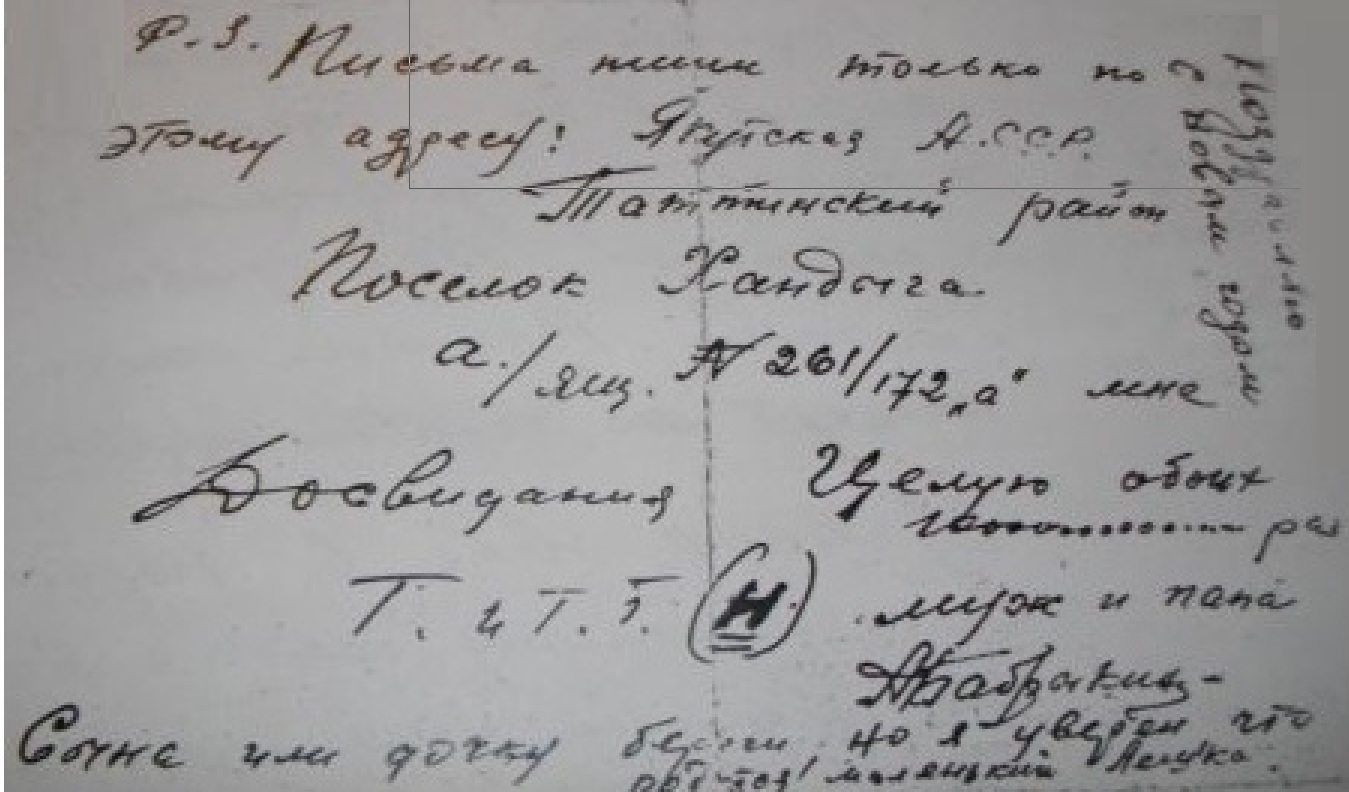 P.S. Письма пиши только по
этому адресу: Якутская А.С.С.Р.
Таттинский район
Поселок Хандыга
а./ящ. № 261/172 „а“ мне
Досвидания Целую обоих
раз
Т. и Т.Т. (Н.) муж и папа
Сына или дочку береги, но я уверен что
маленький
Поздравляю
с новым годом